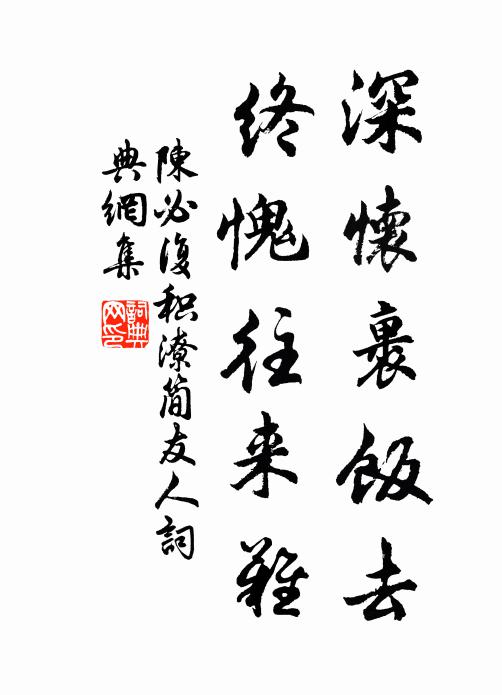 深懷裹飯去
終愧往来難
陳必復积潦简友人詞
典網集
詞典
网印